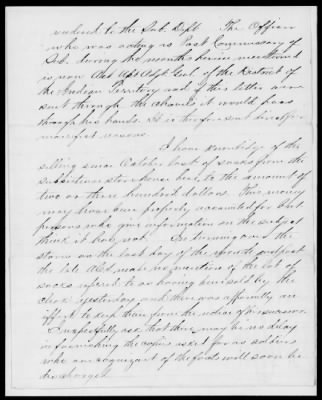 ndered to the Sub. Dept. The Officer
who was acting as Post Commissary of
Sub. during the months herein mentioned
is now Act Asst Adjt Genl of the District of
the Indian Territory and if this letter were
sent through the channels it would pass
through his hands. It is therefore sent direct for
manifest reasons.
I have knowledge of the
selling since October last of sacks from the
subsistence store house here to the amount of
two or three hundred dollars. This money
may have been properly accounted for but
persons who give information on the subject
think it has not. In turning over the
stores on the last day of the month
the late ACS made no mention of the lot of
sacks referred to as having been sold by the
clerk yesterday, and there was apparently an
effort to keep them from the notice of his successor.
I respectfully ask that there may be no delay
in furnishing the copies asked for as soldiers
who are cognizant of the facts will soon be
discharged.